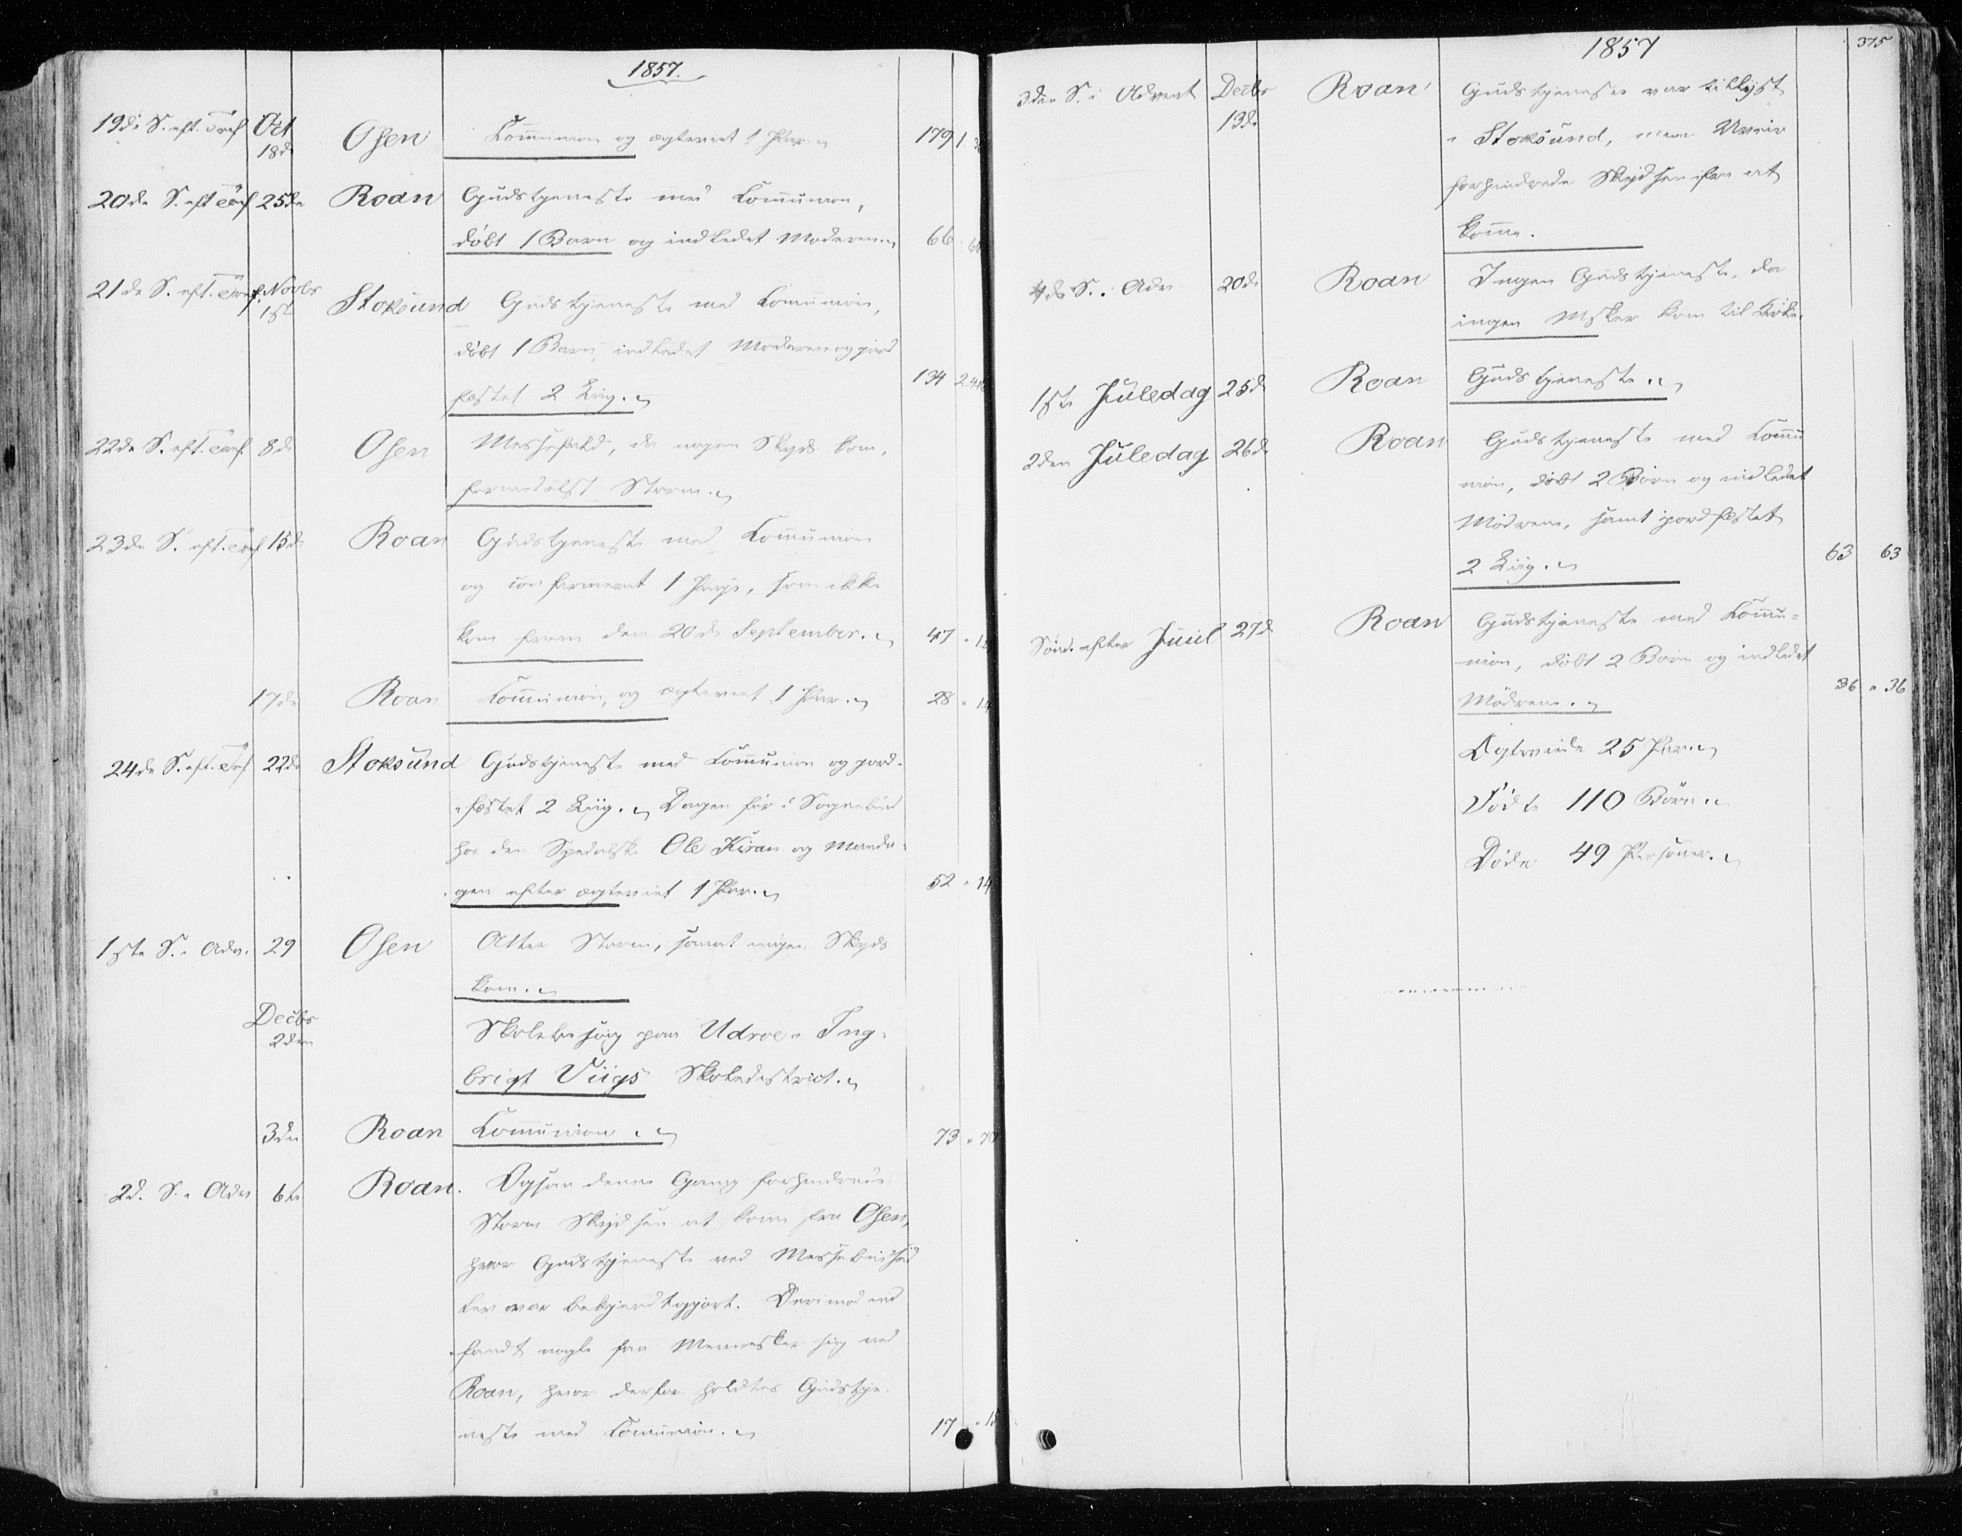 1857.
19de S. eft. Tref Oct 18de Osen Communion og ægteviet 1 Par. 179 1.
20de S. eft Tref 25de Roan Gudstjeneste med Communion,
döbt 1 Barn og indledet Moderen. 66
21de S. eft. Tref. Novbr 1ste Stoksund Gudstjeneste med Communion,
döbt 1 Barn, indledet Moderen og jord
fæstet 2 Liig. 134 2.
22de S. eft. Tref. 8de Osen Messefald, da ingen Skyds kom,
formedelst Storm.
23de S. eft. Tref 15de Roan Gudstjeneste med Communion
og confirmeret 1 Pige, som ikke
kom frem den 20de September. 47
17de Roan Communion, og ægteviet 1 Par. 28 " 14
24de S. eft. Tref 22de Stoksund Gudstjeneste med Communion og jord-
fæstet 2 Liig. Dagen för i Sognebud
hos den Spedalske Ole Kiran og Manda-
gen efter ægteviet 1 Par. 52 " 14
1ste S. i Adv. 29 Osen Atter Storm, samt ingen Skyds
kom.
Decbr 2den Skolebesög paa Udroe i Ing-
brigt Viigs Skoledistrict.
3die Roan Communion. 73 " 70
2d. S. i Adv 6te Roan. Ogsaa denne Gang forhindrede
Storm Skydsen at komme fra Osen,
hvor Gudstjeneste ved
var bekjendtgjort. Derimod ind
fandt nogle faa Mennesker sig ved
Roan, hvor derfor holdtes Gudstje-
neste med Communion. 17 " 15
1857 375
3die S. i Advent Decbr 13de Roan Gudstjeneste var tillyst
i Stoksund, men Uveir
forhindrede Skydsen fra at
komme.
4de S. i Adv 20de Roan Ingen Gudstjeneste, da
ingen Msker kom til Kirke.
1ste Juledag 25de Roan Gudstjeneste.
2den Juledag 26de Roan Gudstjeneste med Commu
nion, döbt 2 Börn og indledet
Mödrene, samt jordfæstet
2 Liig. 63 63
Sönd. efter Juul 27de Roan Gudstjeneste med Commu=
nion, döbt 2 Börn og indledet
Mödrene. 36 " 36
Ægteviede 25 Par.
Födte 110 Börn.
Döde 49 Personer.